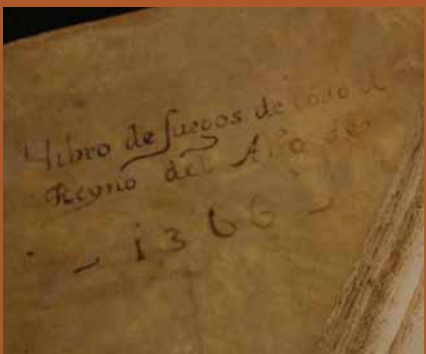 Libro de fuegos de todo el
Reyno del Año de
- 1366 -